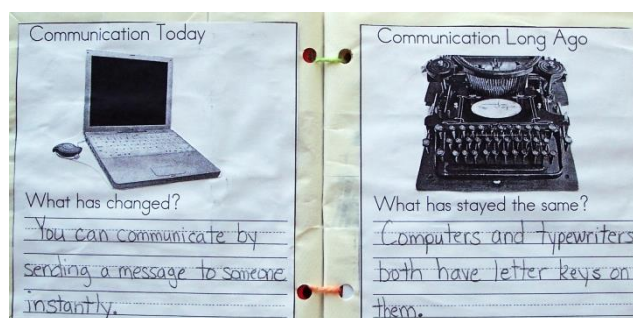 Communication Today
What has changed?
You can communicate by
sending a message to someone
instantly.
Communication Long Ago
What has stayed the same?
Computers and typewriters
both have letter keys on
them.